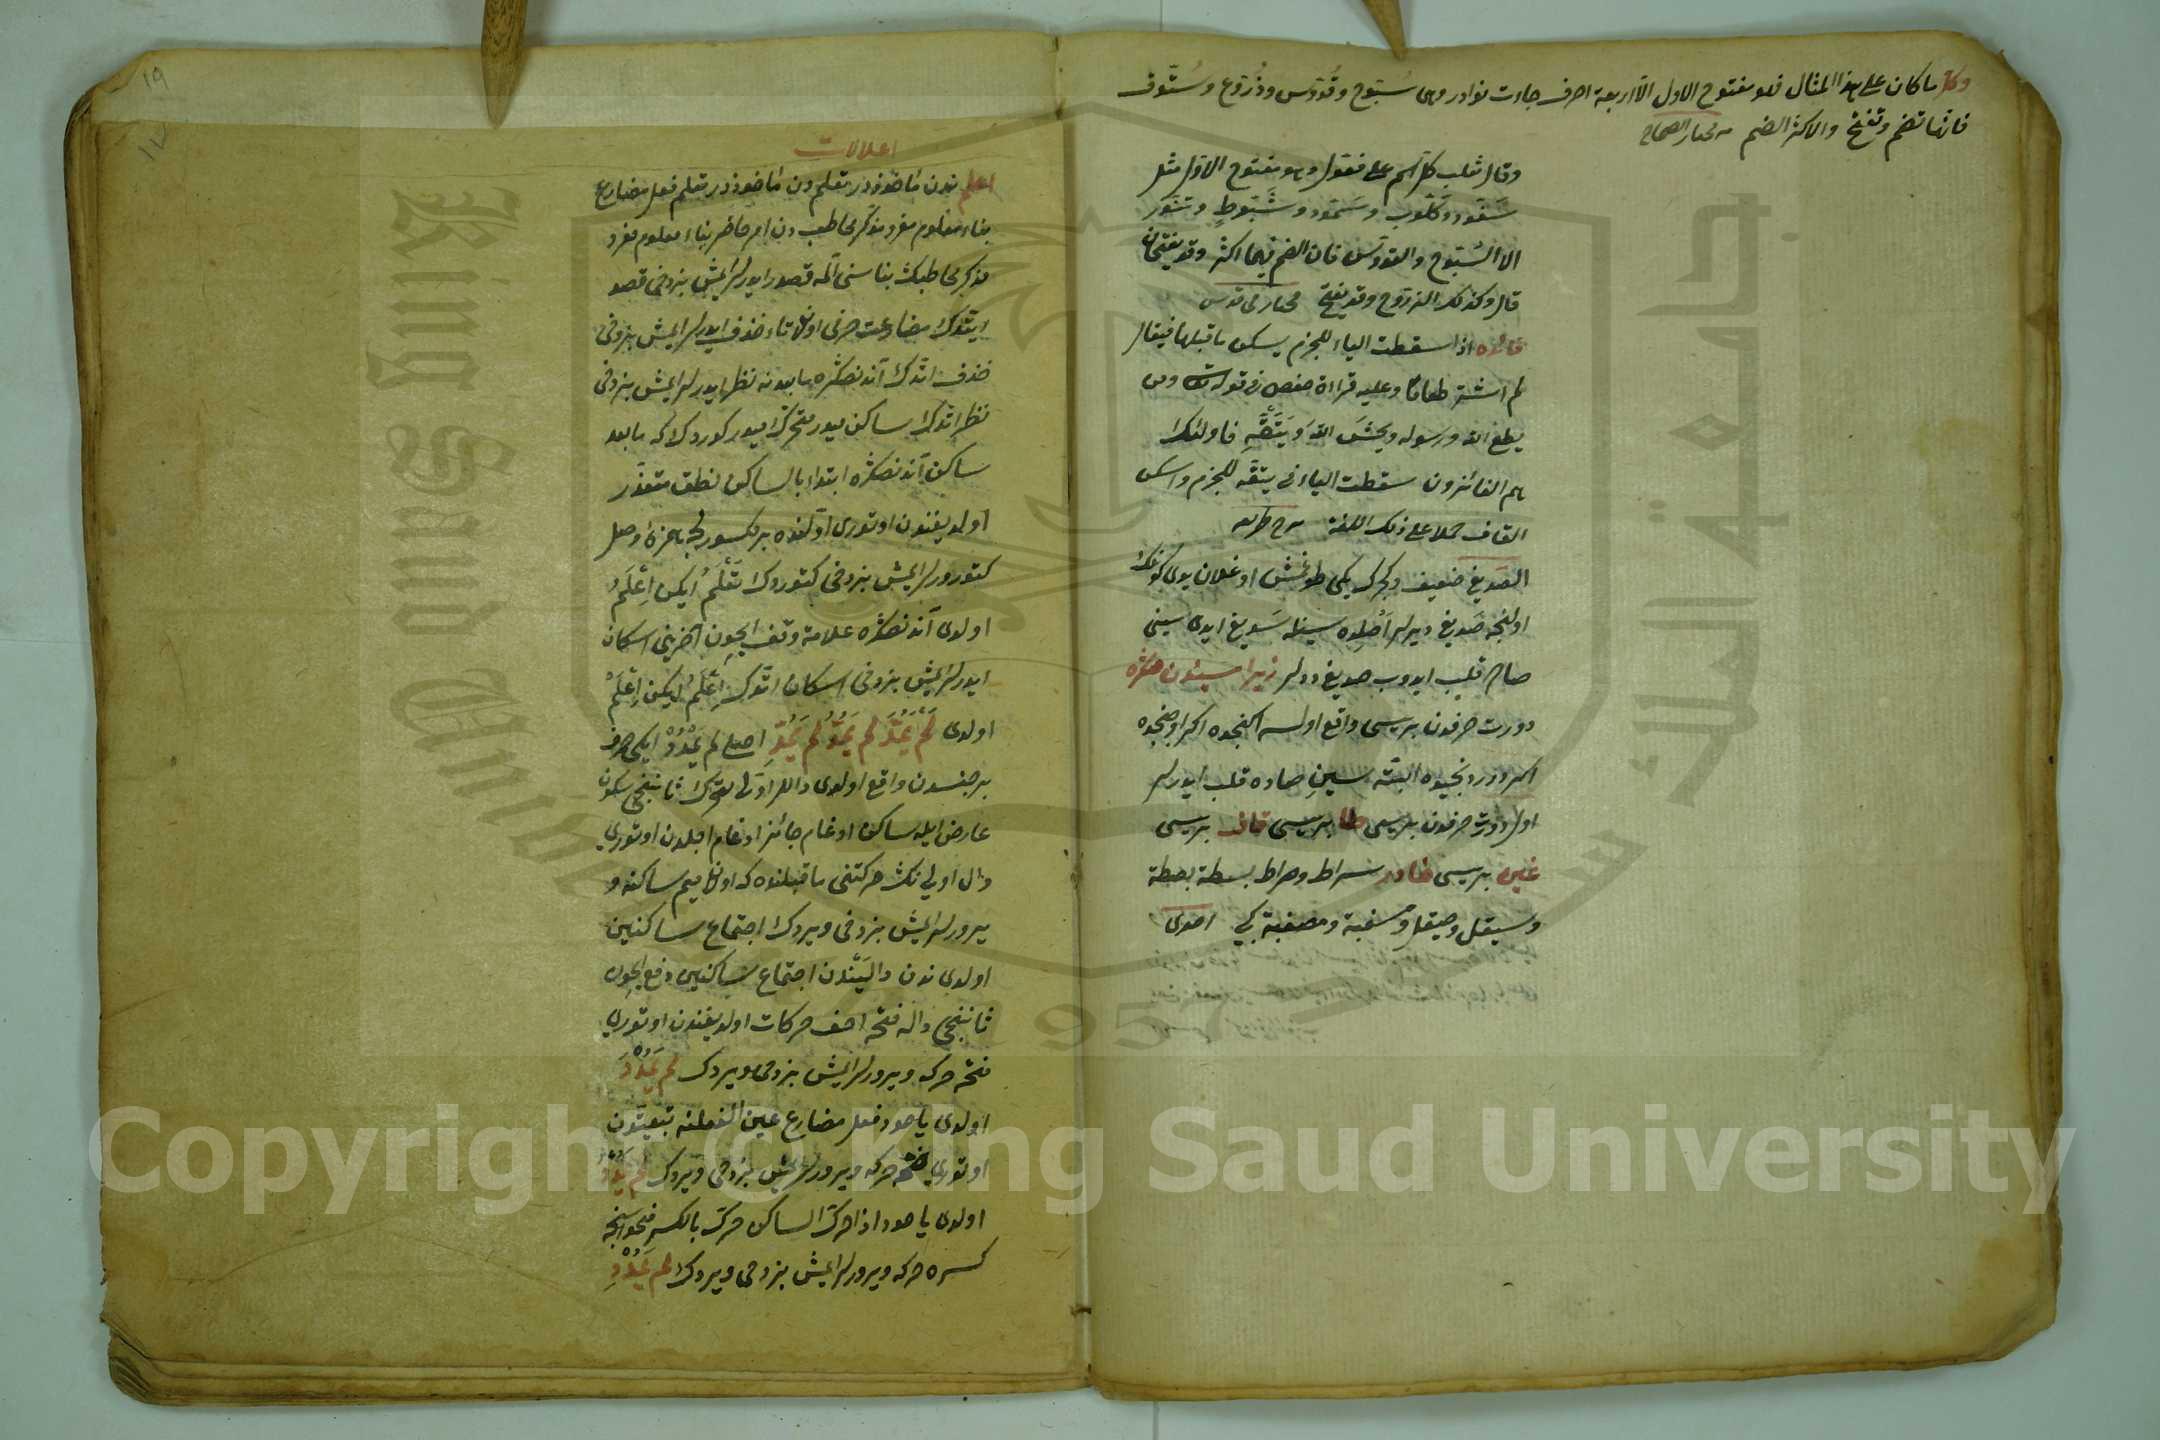 وكل ما كان على هذا المثال فهو مفتوح الاول الا اربعة احرف جاءت نوادر وهى سُبّوح وقُدّوس وذُرّوح وسُتّوق
فانها تضم وتفتح والاكثر الضم مختار الصحاح
وقال ثعلب كل اسم على فعّول وهو مفتوح الاول مثل
سَفّود وكَلّوب وسَمّور وشَبّوط وتنّور
الا السُبّوح والقدّوس فان الضم فيهما اكثر وقد يفتحان
قال وكذلك الذرّوح وقد يفتح مختار فى قدس
فائده اذا سقطت الياء للجزم يسكن ما قبلها فيقال
لم اشتر طعاما وعليه قراءة حفص فى قوله تعالى ومن
يطع الله ورسوله ويخش الله ويَتَّقْهِ فاولئك
هم الفائزون سقطت الياء فى يتقه للجزم واسكن
القاف حملا على ذلك اللغة
الصديغ ضعيف ديمكدر يكى طوغمش اوغلان يدى كونلك
اولنجه صَديغ ديرلر اَصْلِده سينله سَديغ ايدى سينى
صاده قلب ايدوب صديغ ديدلر زيرا سيندن صكره
دورت حرفدن بريسى واقع اولسه ايكنجيده اكر اوچنجيده
اكر دردنجيده البته سين صاده قلب ايدرلر
اول دورت حرفدن بريسى طا بريسى قاف بريسى
غين بريسى خا در سراط وصراط بسطة بصطة
وسيقل وصيقل ومسغبة ومصغبة كبى اخترى
اعلالات
اعلم ندن مأخوذدر تعلم دن مأخوذدر تعلم فعل مضارع
بناء معلوم مفرد مذكر مخاطب دن امر حاضر بناء معلوم مفرد
مذكر مخاطبك بناسنى المه قصد ايدرلر ايمش بزدخى قصد
ايتدك مضارعت حرفى اولان تاء حذف ايدرلر ايمش بزدخى
حذف اتدك آندنصكره مابعدنه نظر ايدرلر ايمش بزدخى
نظر اتدك ساكن ميدر متحرك ميدر كوردك كه مابعد
ساكن آندنصكره ابتدا بالساكن نطق متعذر
اولديغندن اوتورى اولنده بر مكسورجه همزهٔ وصل
كتورورلر ايمش بزدخى كتوردك تَعْلَمُ ايكن اِعْلَمُ
اولدى آندنصكره علامة وقف ايچون آخرينى اسكان
ايدرلر ايمش بزدخى اسكان اتدك اِعْلَمُ ايكن اِعْلَمْ
اولدى لَمْ يَمُدَّ لم يَمُدُّ لم يَمُدِّ اصلى لم يَمْدُدْ ايكى حرف
بر جنسدن واقع اولدى داللر اولى متحرك ثانينجى سكون
عارض ايله ساكن ادغام جائز ادغام اجلدن اوتورى
دال اولى نك حركتنى ماقبلنده كه اولان ميم ساكنه و
يرورلر ايمش بزدخى ويردك اجتماع ساكنين
اولدى ندن دالَيندن اجتماع ساكنين دفع ايچون
ثانينجى داله فتحه اخف حركات اولديغندن اوتورى
فتحه حركه ويرورلر ايمش بزدخى ويردك لم يَمُدَّ
اولدى ياخود فعل مضارع عين الفعلنه تبعيتدن
اوتورى ضمه حركه ويرورلر ايمش بزدخى ويردك لم يَمُدُّ
اولدى ياخود اذا حرك الساكن حرك بالكسر فحواسنجه
كسره حركه ويرورلر ايمش بزدخى ويردك لم يَمُدِّ
Copyright © King Saud University